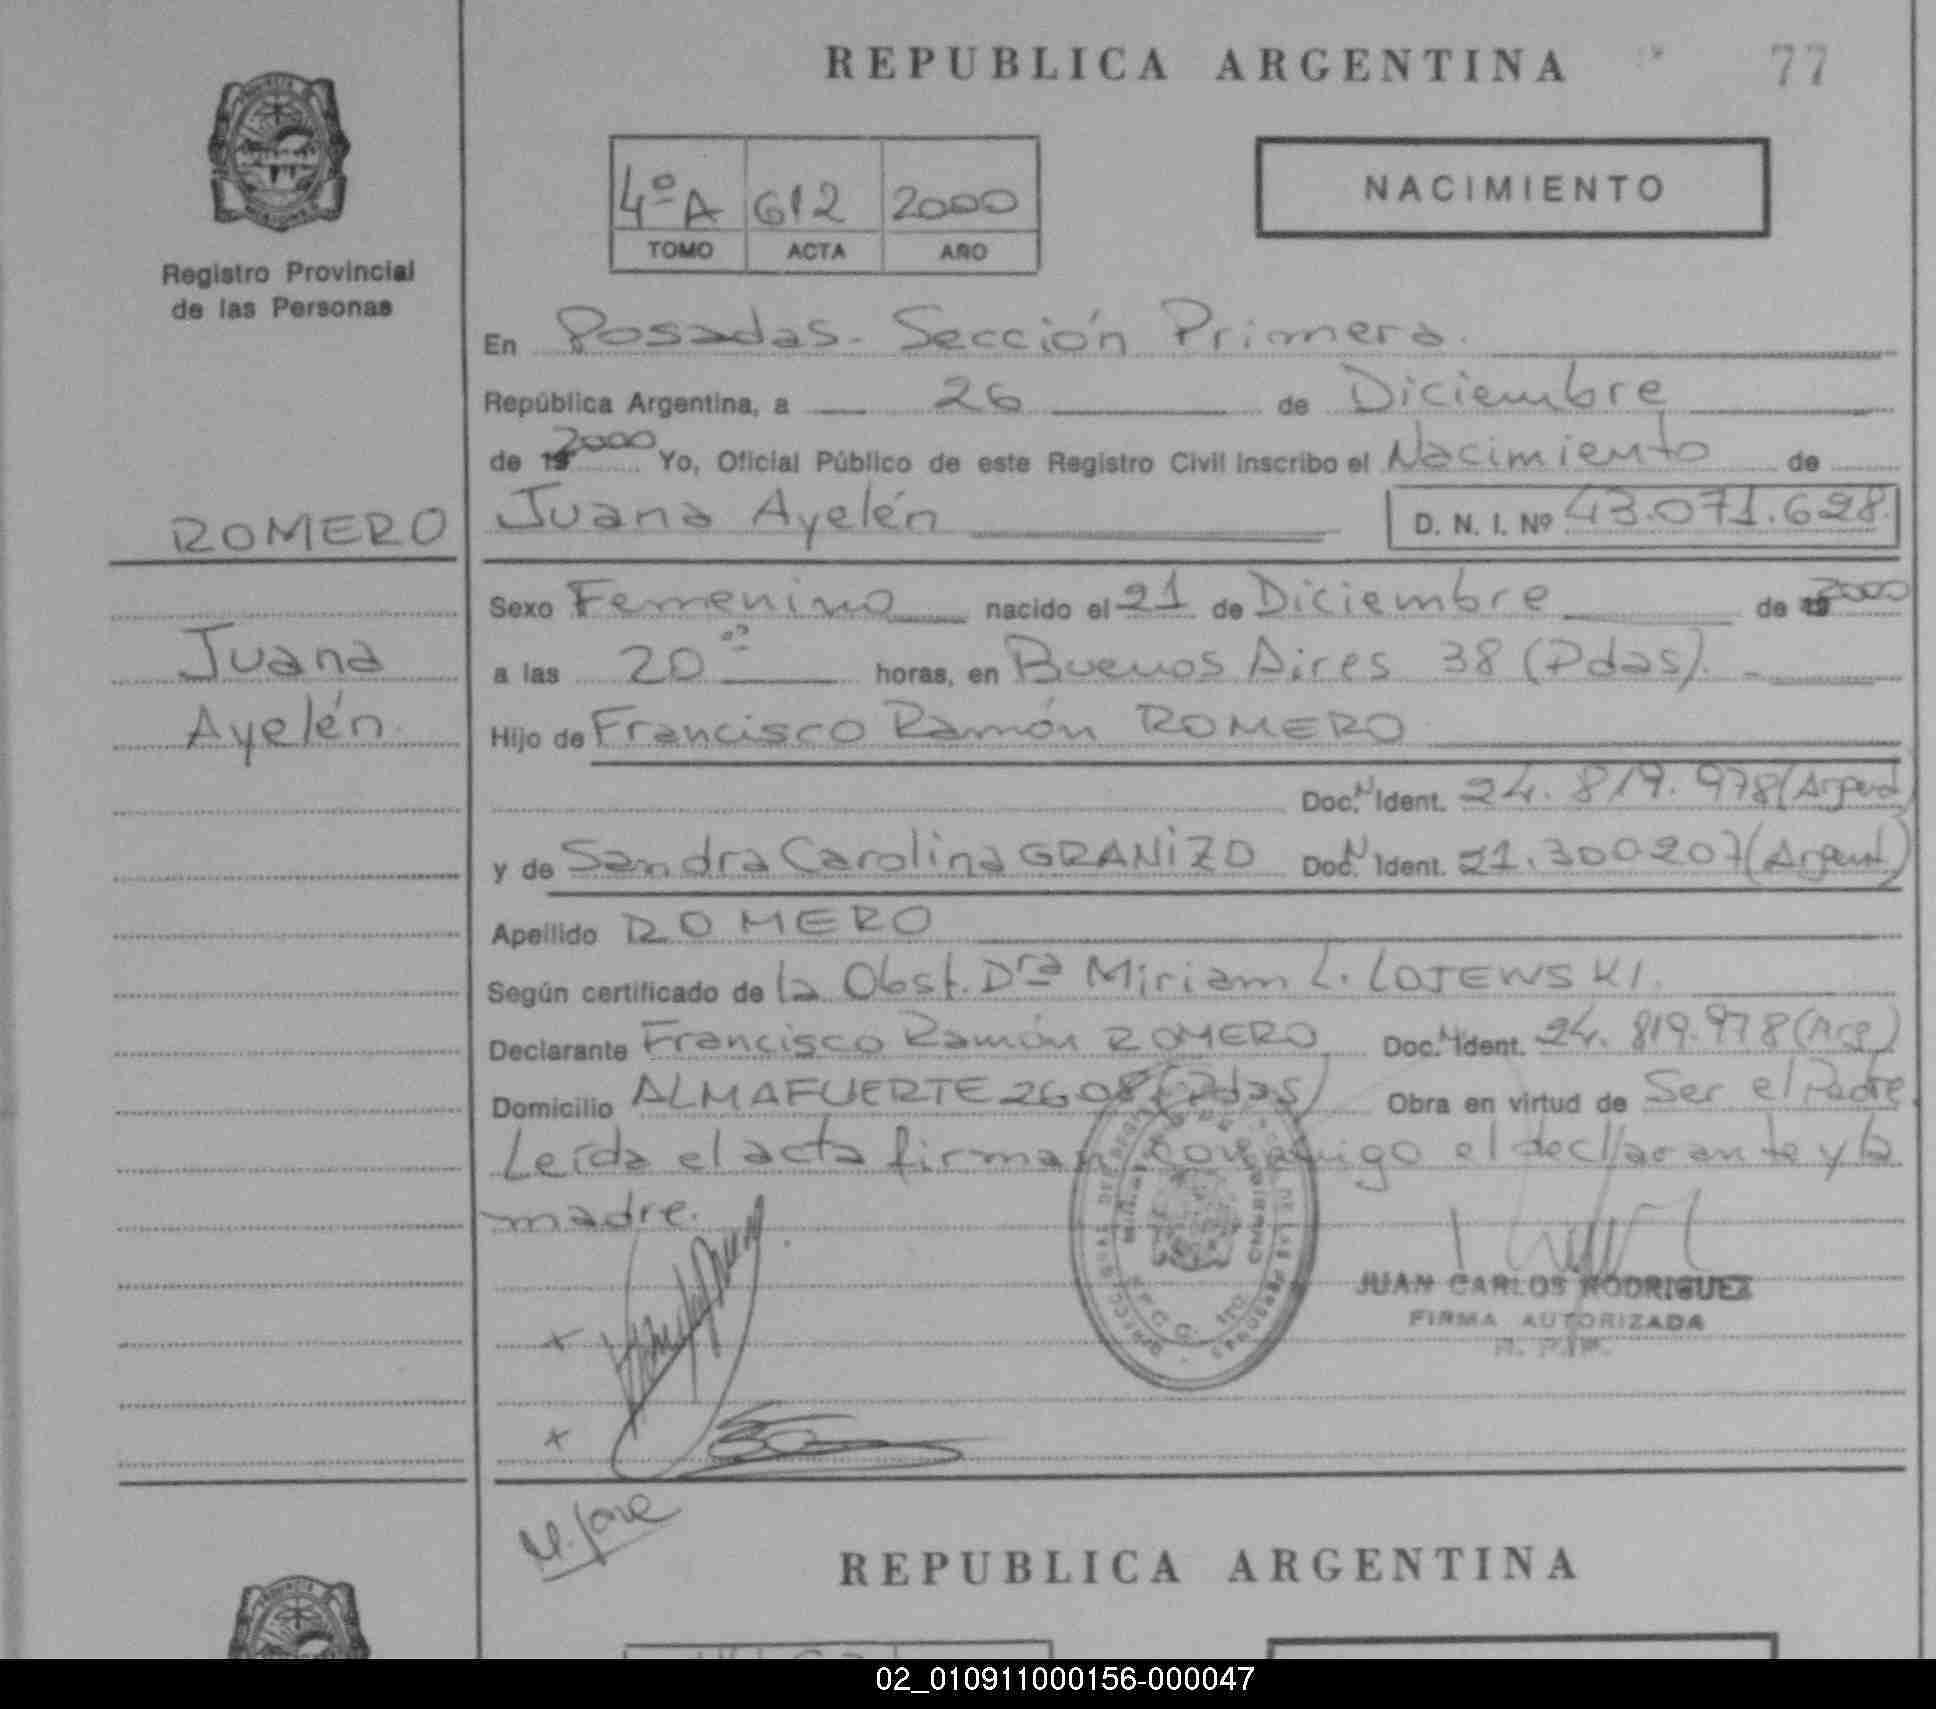 REPUBLICA ARGENTINA 77
4º A 612 2000
TOMO ACTA AÑO
NACIMIENTO
Registro Provincial
de las Personas
En Posadas. Sección Primera.
República Argentina, a 26 de Diciembre
de 19 2000 Yo, Oficial Público de este Registro Civil inscribo el Nacimiento de
ROMERO Juana Ayelén D. N. I. Nº 43.071.628.
Sexo Femenino nacido el 21 de Diciembre de 19 2000
Juana a las 20 horas, en Buenos Aires 38 (Pdas).
Ayelén. Hijo de Francisco Ramón ROMERO
Doc. N Ident. 24.819.978 (Argent.
y de Sandra Carolina GRANIZO Doc. N Ident. 21.300207 (Argent.)
Apellido ROMERO
Según certificado de la Obst. Dra Miriam L. LOJEWSKI.
Declarante Francisco Ramón ROMERO Doc. N Ident. 24.819.978 (Arg)
Domicilio ALMAFUERTE 2608 (Pdas) Obra en virtud de Ser el Padre.
Leída el acta firman conmigo el declarante y la
madre.
JUAN CARLOS RODRIGUEZ
FIRMA AUTORIZADA
REPUBLICA ARGENTINA
02_010911000156-000047